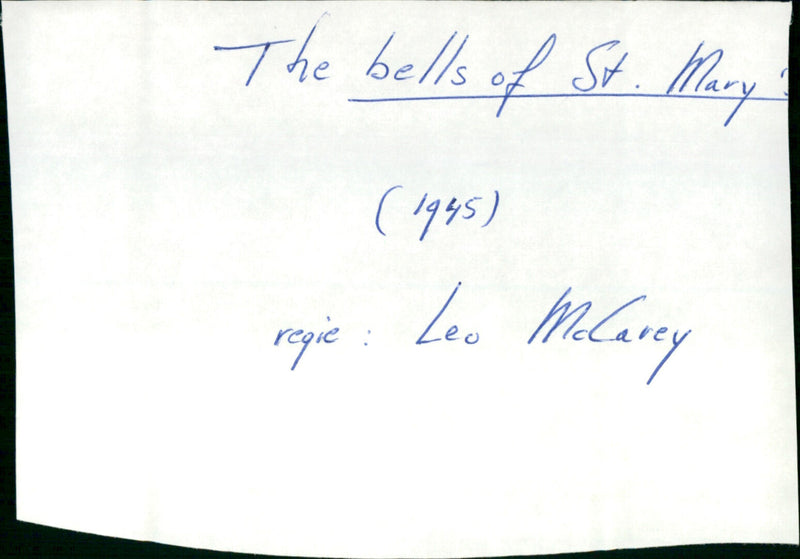 The bells of St. Mary's
(1945)
regie: Leo McCarey